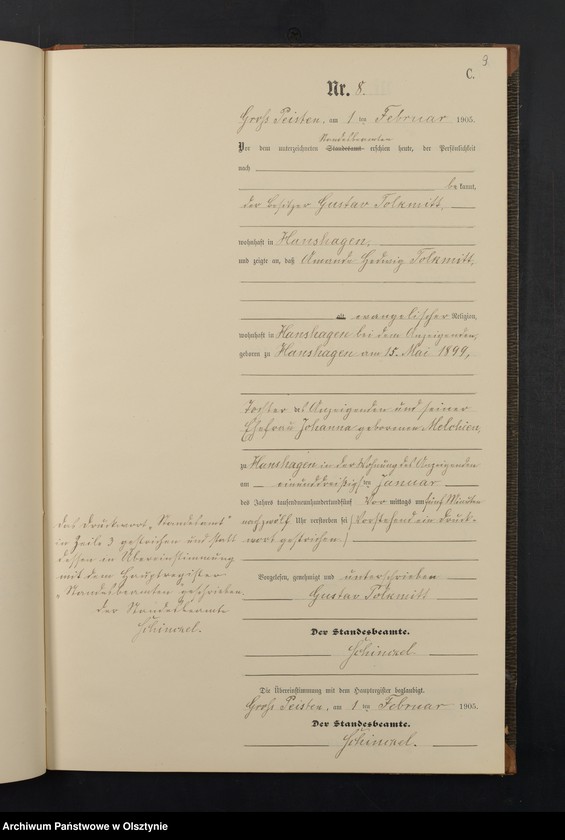 9
C.
Nr. 8.
Groß Peisten, am 1 ten Februar 1905.
Standesbeamten
Vor dem unterzeichneten Standesamt erschien heute, der Persönlichkeit
nach
be kannt,
der Besitzer Gustav Tolkmitt,
wohnhaft in Hanshagen,
und zeigte an, daß Amande Hedwig Tolkmitt,
alt evangelischer Religion,
wohnhaft in Hanshagen bei dem Anzeigenden,
geboren zu Hanshagen am 15. Mai 1899,
Tochter des Anzeigenden und seiner
Ehefrau Johanna geborenen
zu Hanshagen in der Wohnung des Anzeigenden
am einunddreißigsten Januar
des Jahres tausendneunhundertundfünf Vor mittags um fünf Minuten
nach zwölf Uhr verstorben sei (Vorstehend ein Druck-
wort gestrichen.)
Das Druckwort „Standesamt"
in Zeile 3 gestrichen und statt
dessen in Übereinstimmung
mit dem Hauptregister
„Standesbeamten" geschrieben.
Der Standesbeamte
Schinkel.
Vorgelesen, genehmigt und unterschrieben
Gustav Tolkmitt
Der Standesbeamte.
Schinkel.
Die Übereinstimmung mit dem Hauptregister beglaubigt.
Groß Peisten, am 1 ten Februar 1905.
Der Standesbeamte.
Schinkel.
Archiwum Państwowe w Olsztynie